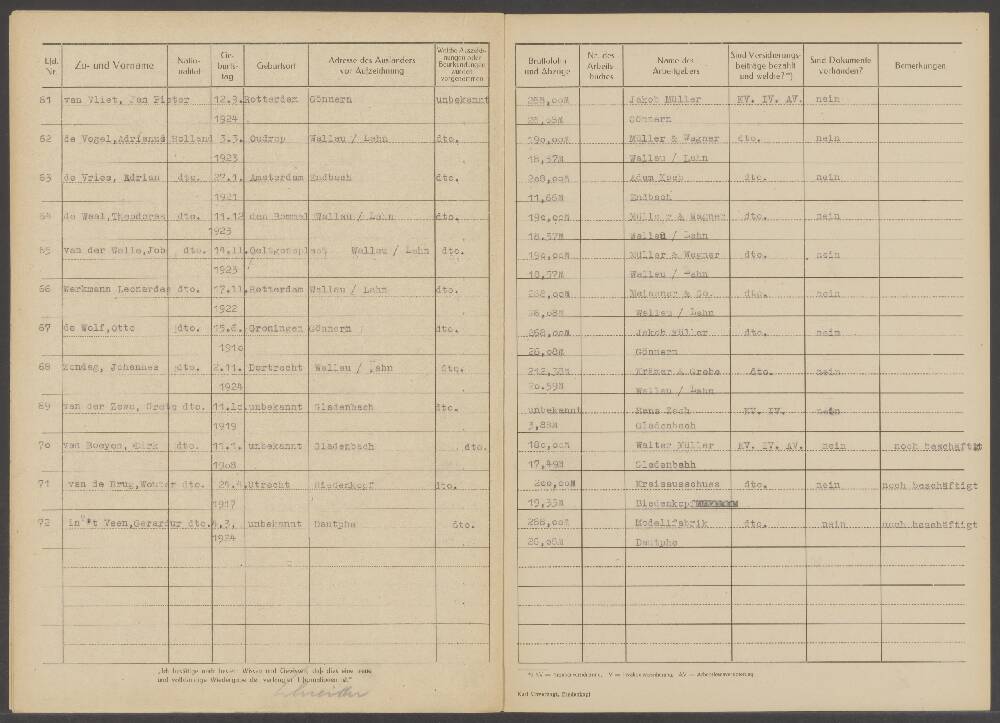 Lfd. Nr.
Zu- und Vorname
Natio-nalität
Ge-burts-tag
Geburtsort
Adresse des Ausländers vor Aufzeichnung
Welche Auszeich-nungen oder Beurkundungen wurden vorgenommen
Bruttolohn und Abzüge
Nr. des Arbeits-buches
Name des Arbeitgebers
Sind Versicherungs-beiträge bezahlt und welche?*)
Sind Dokumente vorhanden?
Bemerkungen
61 van Vliet, Jan Pieter 12.9. Rotterdam Gönnern unbekannt 268,00M Jakob Müller KV. IV. AV. nein
1924 26,08M Gönnern
62 de Vogel, Adrianus Holland 3.3. Oudrop Wallau / Lahn dto. 190,00M Müller & Wagner dto. nein
1923 18,57M Wallau / Lahn
63 de Vries, Adrian dto. 27.1. Amsterdam Endbach dto. 208,00M Adam Koch dto. nein
1921 11,66M Endbach
64 de Waal, Theodorus dto. 11.12 den Bommel Wallau / Lahn dto. 190,00M Müller & Wagner dto. nein
1923 18,57M Wallau / Lahn
65 van der Welle, Job dto. 14.11. Oeltgensplaat Wallau / Lahn dto. 190,00M Müller & Wagner dto. nein
1923 18,57M Wallau / Lahn
66 Werkmann Leonardes dto. 17.11. Rotterdam Wallau / Lahn dto. 268,00M Meissner & Co. dto. nein
1922 26,08M Wallau / Lahn
67 de Wolf, Otto dto. 15.6. Groningen Gönnern dto. 268,00M Jakob Müller dto. nein
1910 26,08M Gönnern
68 Zondag, Johannes dto. 2.11. Dortrecht Wallau / Lahn dto. 212,38M Krämer & Grebe dto. nein
1924 20.59M Wallau / Lahn
69 van der Zewe, Grete dto. 11.10. unbekannt Gladenbach dto. unbekannt Hans Zech KV. IV. nein
1919 3,88M Gladenbach
70 van Booyen, Dirk dto. 11.1. unbekannt Gladenbach dto. 180,00M Walter Müller KV. IV. AV. nein noch beschäftigt
1908 17,49M Gladenbahh
71 van de Brug, Wouter dto. 24.4. Utrecht Biedenkopf dto. 200,00M Kreisausschuss dto. nein noch beschäftigt
1917 19,35M Biedenkopf
72 in't Veen, Gerardur dto. 4.3. unbekannt Dautphe dto. 268,00M Modellfabrik dto. nein noch beschäftigt
1924 26,08M Dautphe
„Ich bestätige nach bestem Wissen und Gewissen, daß dies eine neue
und vollständige Wiedergabe der verlangten Informationen ist."
*) KV — Krankenversicherung, IV — Invalidenversicherung, AV — Arbeitslosenversicherung